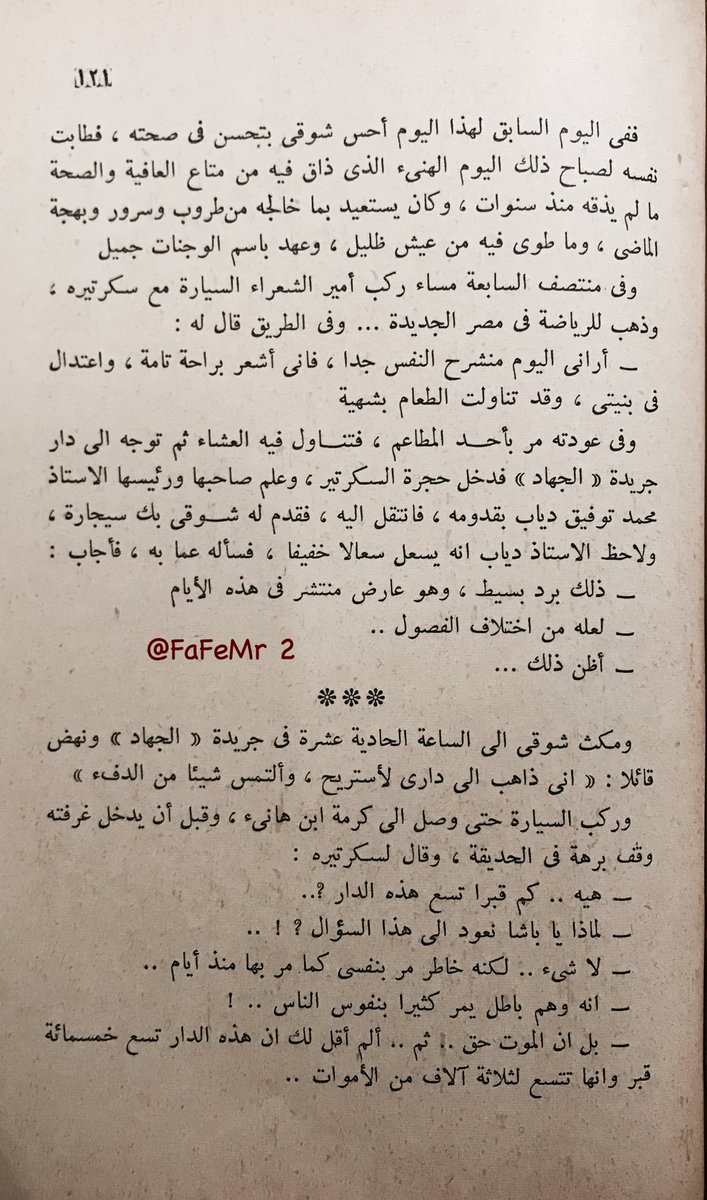 ١٢١
ففى اليوم السابق لهذا اليوم أحس شوقى بتحسن فى صحته ، فطابت
نفسه لصباح ذلك اليوم الهنىء الذى ذاق فيه من متاع العافية والصحة
ما لم يذقه منذ سنوات ، وكان يستعيد بما خالجه من طروب وسرور وبهجة
الماضى ، وما طوى فيه من عيش ظليل ، وعهد باسم الوجنات جميل
وفى منتصف السابعة مساء ركب أمير الشعراء السيارة مع سكرتيره ،
وذهب للرياضة فى مصر الجديدة ... وفى الطريق قال له :
ــ أرانى اليوم منشرح النفس جدا ، فانى أشعر براحة تامة ، واعتدال
فى بنيتى ، وقد تناولت الطعام بشهية
وفى عودته مر بأحــد المطاعم ، فتنــاول فيه العشاء ثم توجه الى دار
جريدة « الجهاد » فدخل حجرة السكرتير ، وعلم صاحبها ورئيسها الاستاذ
محمد توفيق دياب بقدومه ، فانتقل اليه ، فقدم له شــوقى بك سيجارة ،
ولاحظ الاستاذ دياب انه يسعل سعالا خفيفا ، فسأله عما به ، فأجاب :
ــ ذلك برد بسيط ، وهو عارض منتشر فى هذه الأيام
ــ لعله من اختلاف الفصول ..
@FaFeMr 2
ــ أظن ذلك ...
***
ومكث شوقى الى الساعة الحادية عشرة فى جريدة « الجهاد » ونهض
قائلا : « انى ذاهب الى دارى لأستريح ، وألتمس شيئا من الدفء »
وركب السيارة حتى وصل الى كرمة ابن هانىء ، وقبل أن يدخل غرفته
وقف برهة فى الحديقة ، وقال لسكرتيره :
ــ هيه .. كم قبرا تسع هذه الدار ؟..
ــ لماذا يا باشا نعود الى هذا السؤال ؟ ! ..
ــ لا شىء .. لكنه خاطر مر بنفسى كما مر بها منذ أيام ..
ــ انه وهم باطل يمر كثيرا بنفوس الناس .. !
ــ بل ان الموت حق .. ثم .. ألم أقل لك ان هذه الدار تسع خمسمائة
قبر وانها تتسع لثلاثة آلاف من الأموات ..